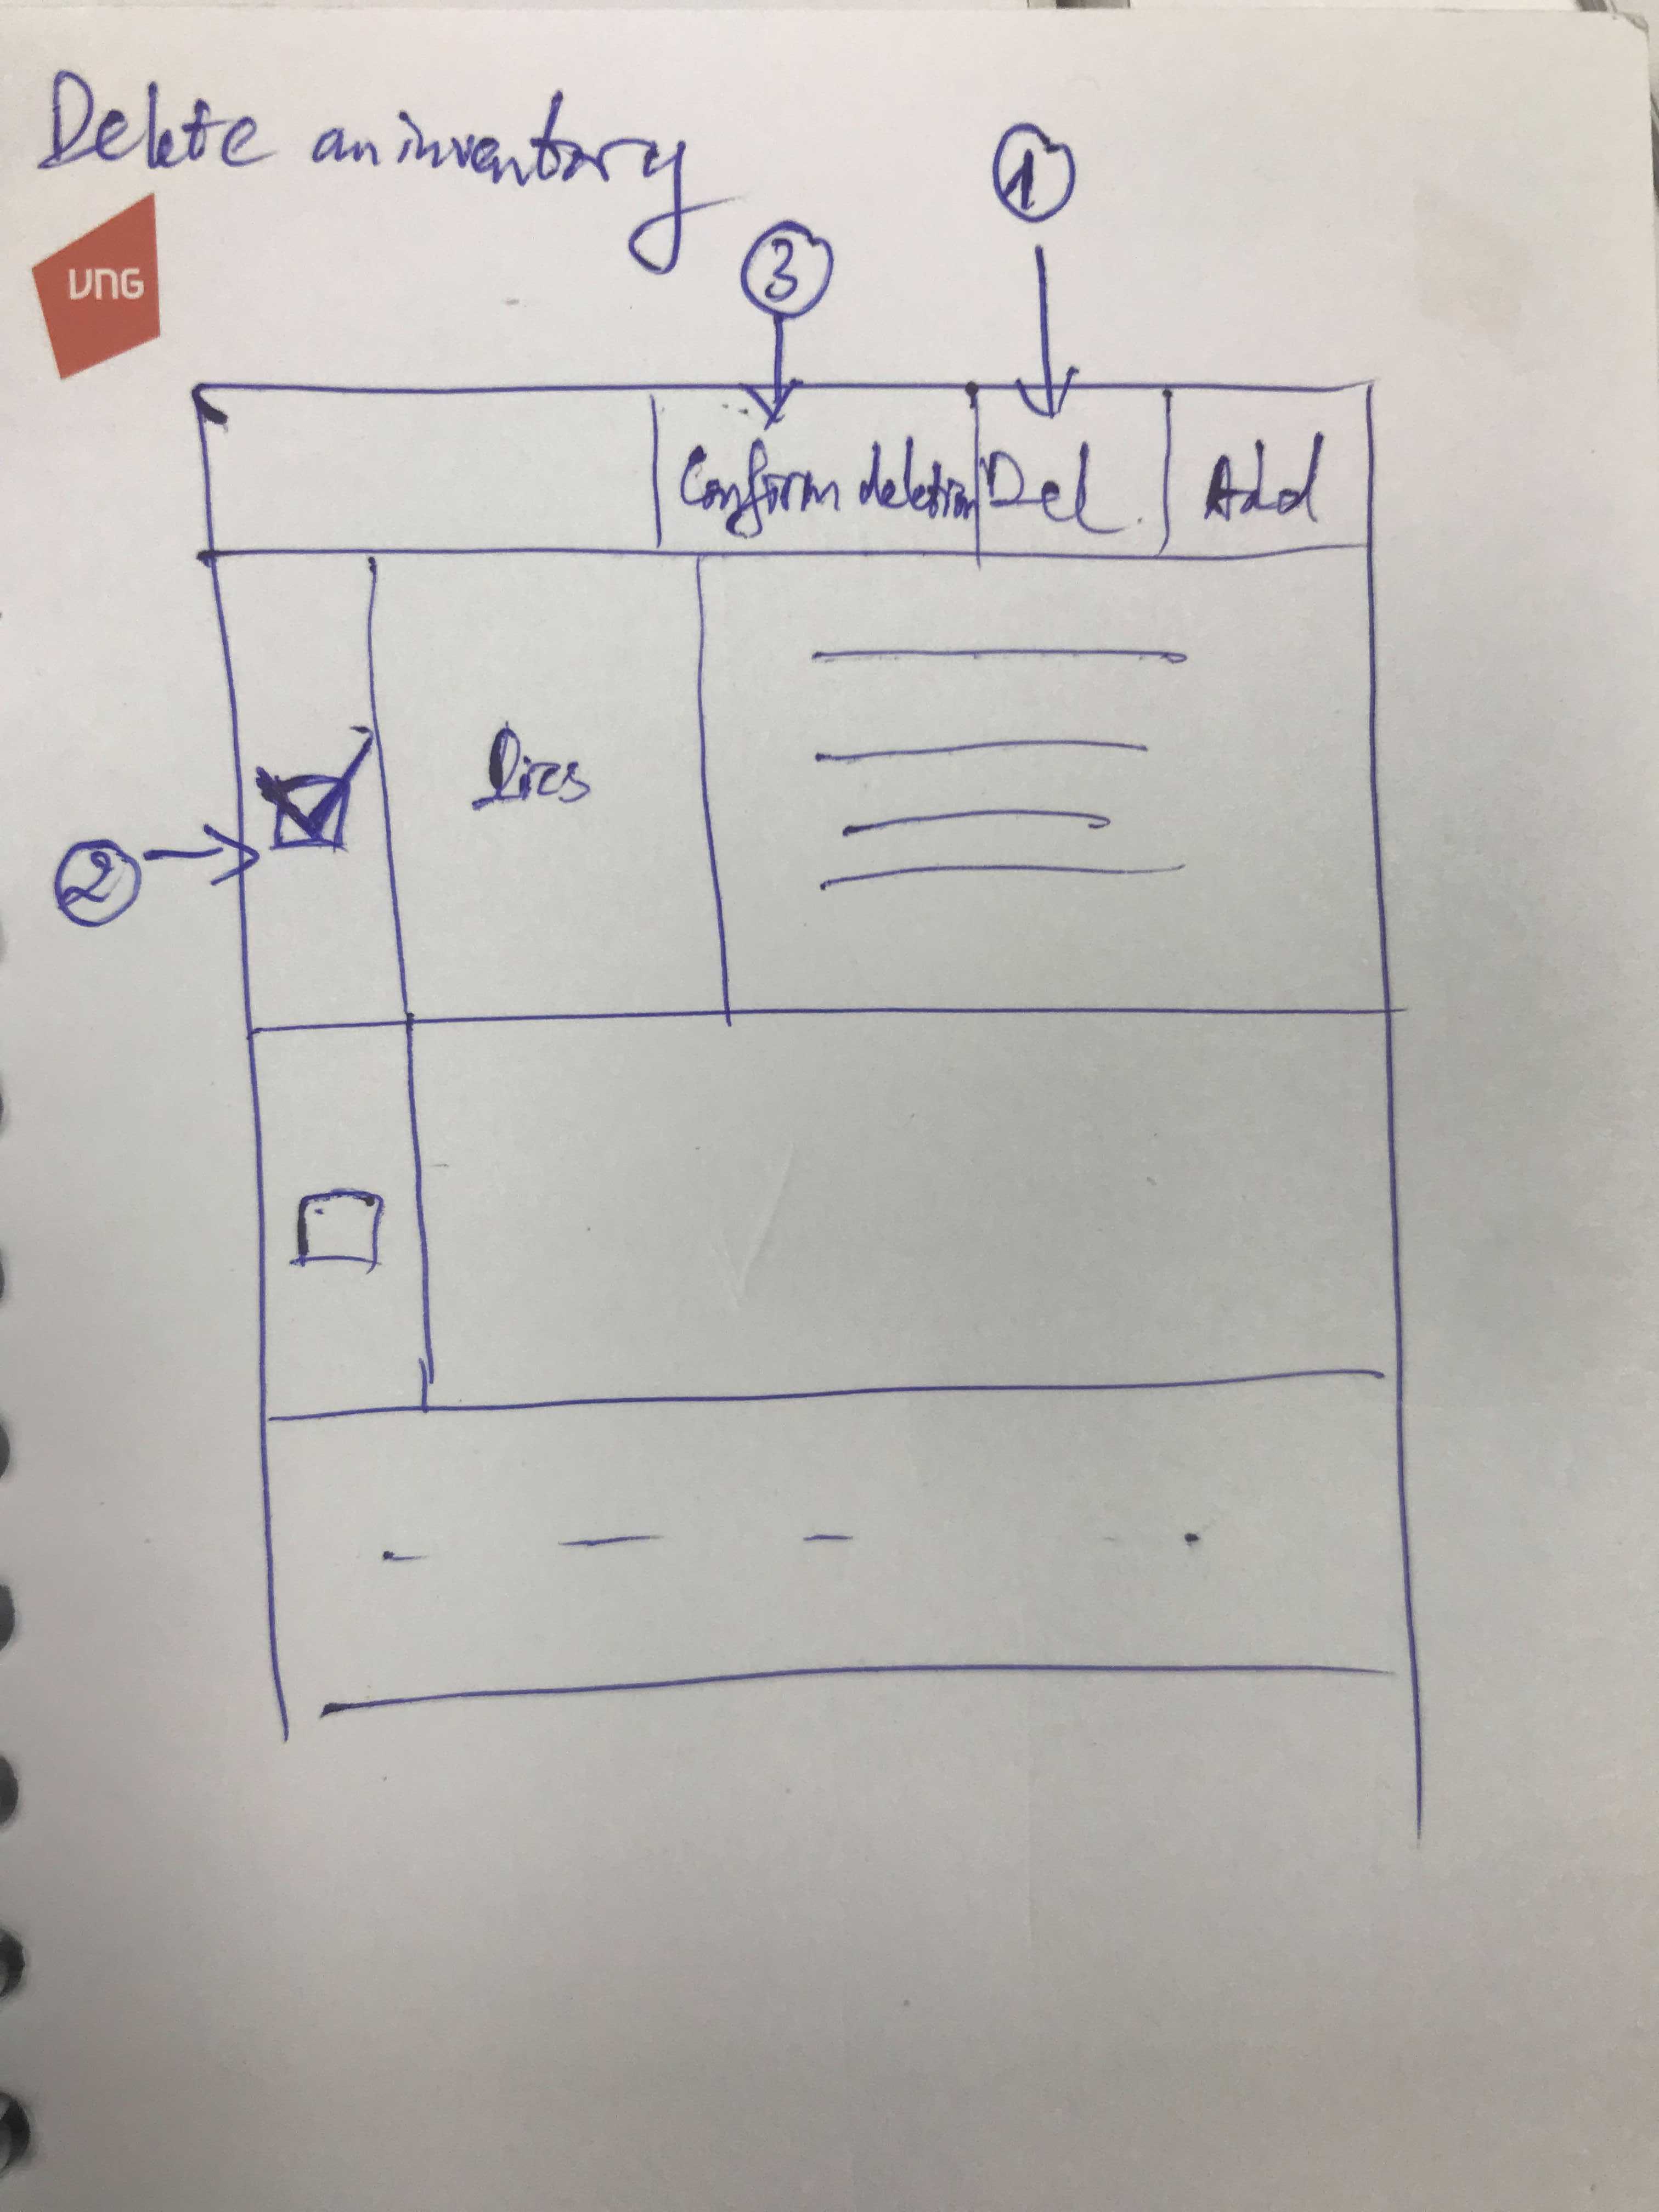 Delete an inventory
VNG
1
3
Confirm deletion Del. Add
2